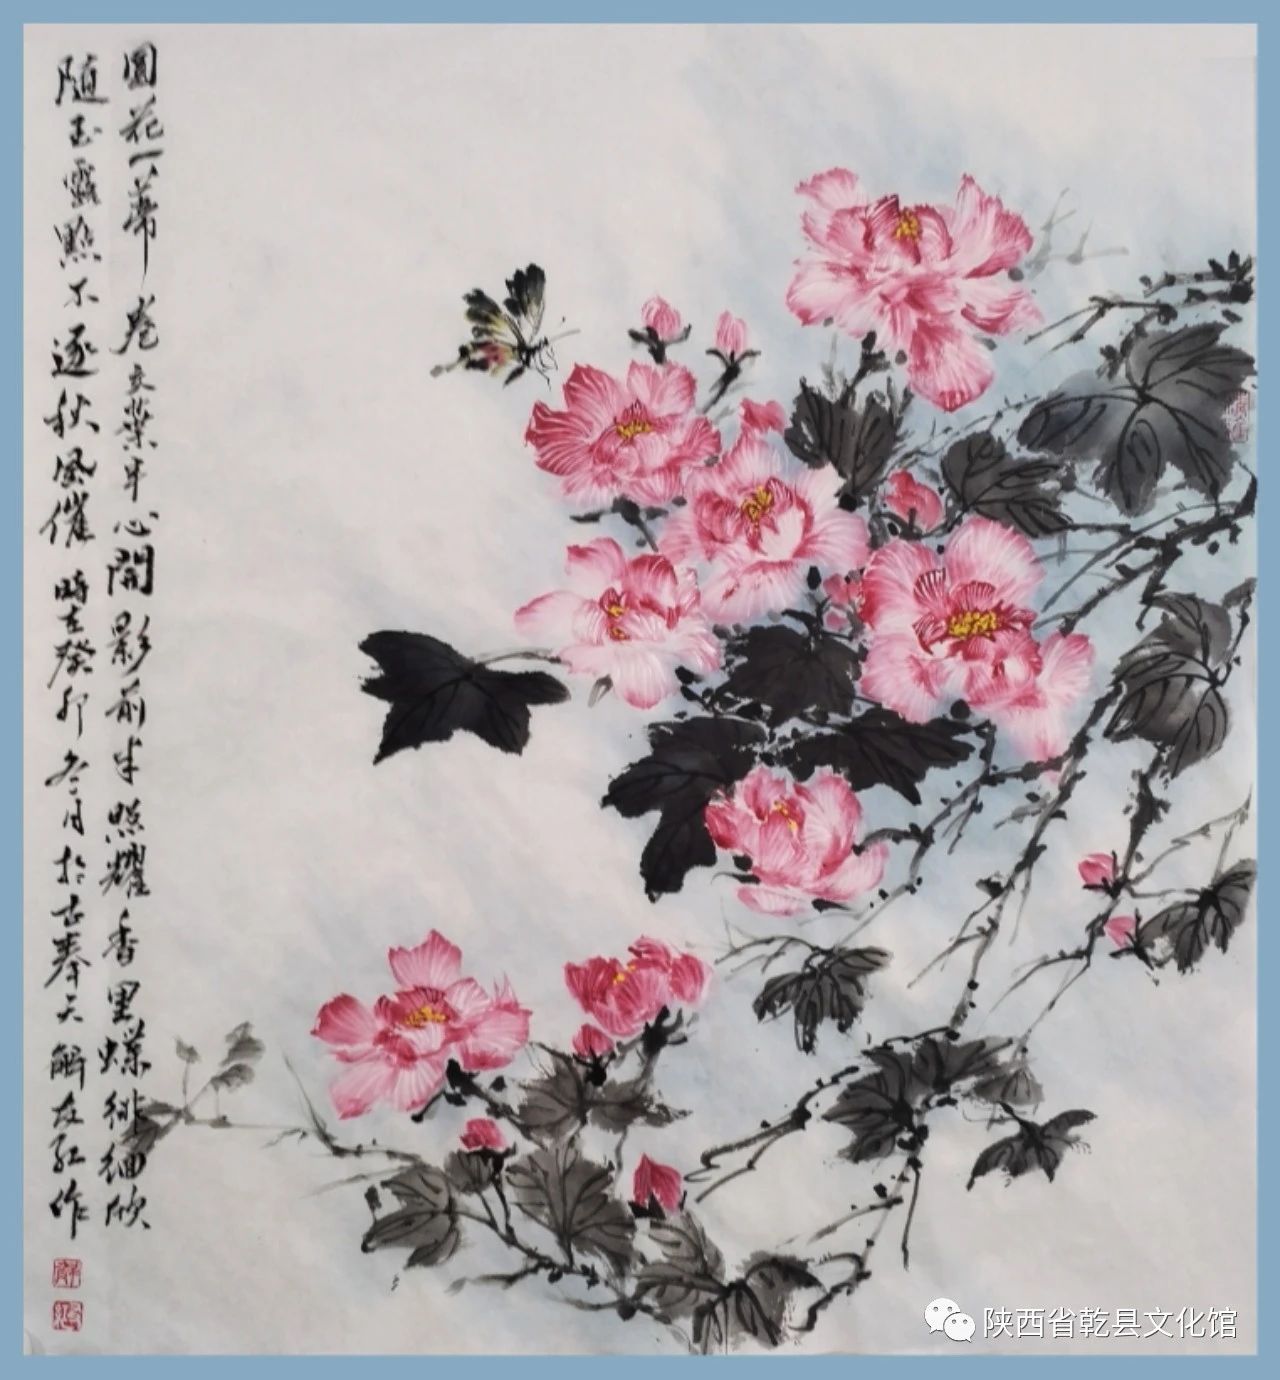 圓花一蒂卷交葉半心開影前光照耀香里蝶徘徊欣
随玉露點不逐秋風催 時在癸卯冬月於古奉天解友红作
陕西省乾县文化馆